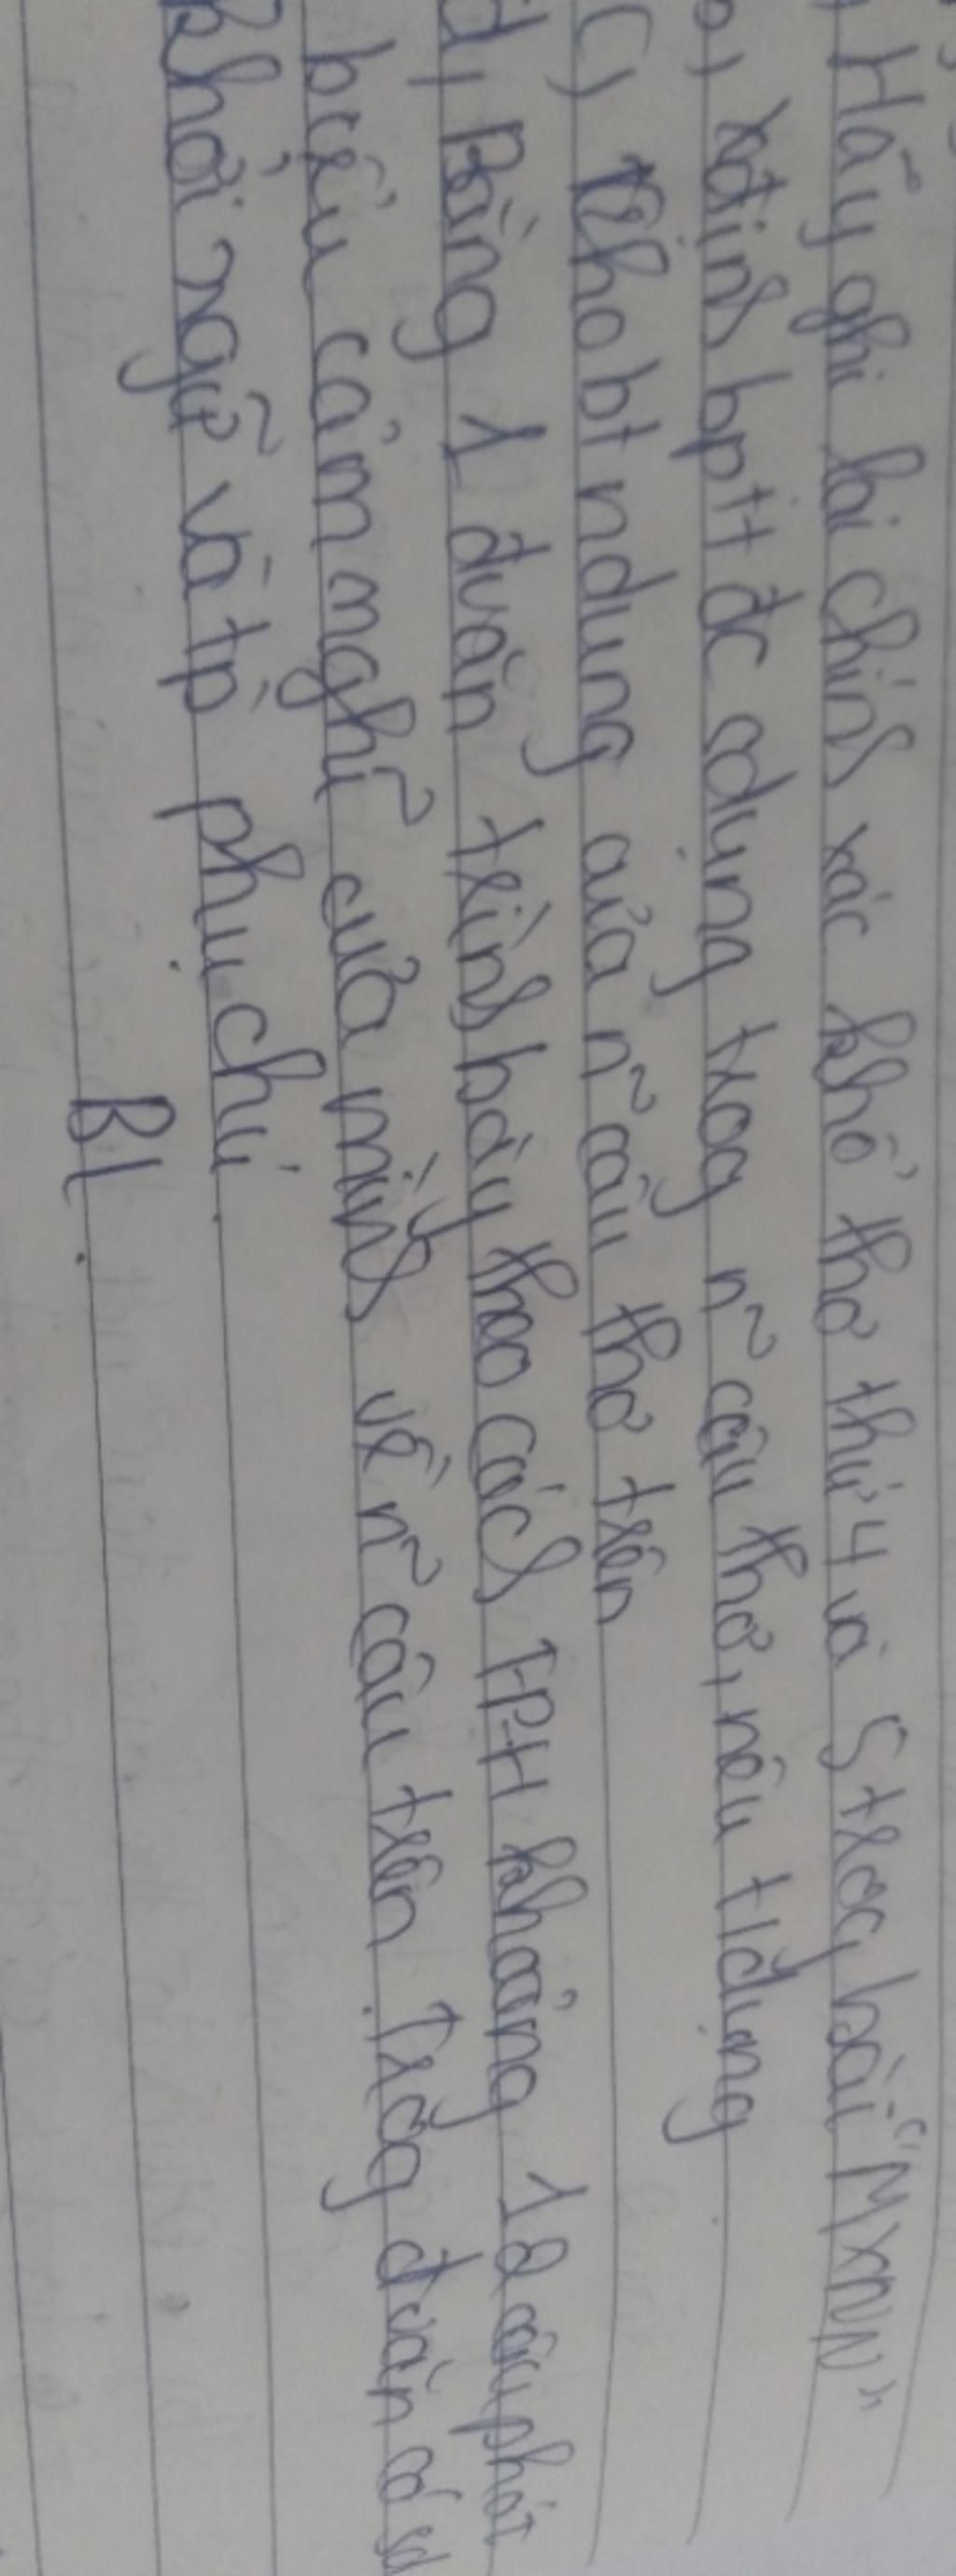 Hãy ghi lại chính xác khổ thơ thứ 4 và 5 trog bài "MXNN"
b, xđịnh bptt đc sdụng trog n~ câu thơ, nêu t/dụng
c, Cho bt ndung của n~ câu thơ trên
d, Bằng 1 đvăn trình bày theo cách TPH khoảng 12 câu phát
biểu cảm nghĩ của mình về n~ câu trên. Trog đvăn có sd
khởi ngữ và tp phụ chú.
Bl.